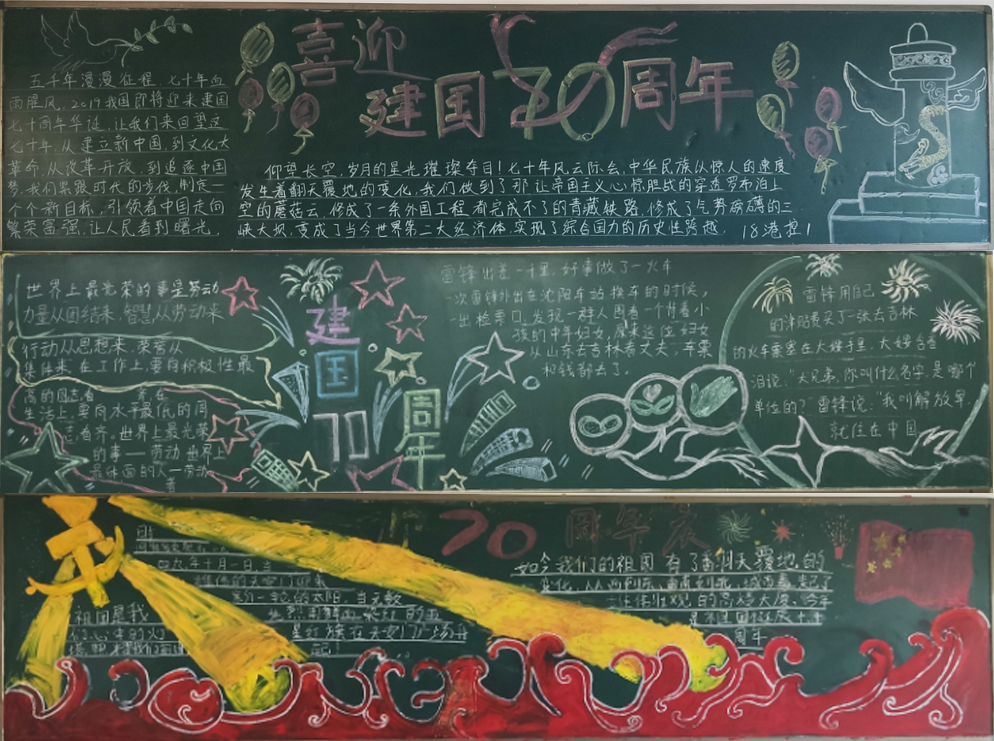 喜迎
建国70周年
五千年漫漫征程，七十年血
雨腥风，2019我国即将迎来建国
七十周年华诞，让我们来回望这
七十年，从建立新中国，到文化大
革命，从改革开放，到追逐中国
梦，我们紧跟时代的步伐，制定一
个个新目标，引领着中国走向
繁荣富强，让人民看到曙光，
仰望长空，岁月的星光璀璨夺目！七十年风云际会，中华民族以惊人的速度
发生着翻天覆地的变化，我们做到了那让帝国主义心惊胆战的穿透罗布泊上
空的蘑菇云，修成了一条外国工程都完成不了的青藏铁路，修成了气势磅礴的三
峡大坝，变成了当今世界第二大经济体，实现了综合国力的历史性跨越．
18港控1
世界上最光荣的事是劳动
力量从团结来，智慧从劳动来
行动从思想来，荣誉从
集体来，在工作上，要向积极性最
高的同志看齐，在
生活上，要向水平最低的同
志看齐，世界上最光荣
的事——劳动，世界上
最体面的人——劳动
者
建
国
70
周
年
雷锋出差一千里，好事做了一火车
一次雷锋外出在沈阳车站换车的时候，
一出检票口，发现一群人围着一个背着小
孩的中年妇女，原来这位妇女
从山东去吉林看丈夫，车票
和钱都丢了．
雷锋用自己
的津贴费买了一张去吉林
的火车票塞在大嫂手里，大嫂含着
泪说："大兄弟，你叫什么名字，是哪个
单位的？"雷锋说："我叫解放军，
就住在中国
70 周年
四九年十月一日
祖国是我
们心中的灯
如今我们的祖国有了翻天覆地的
变化，从西到东，南到北，
周年